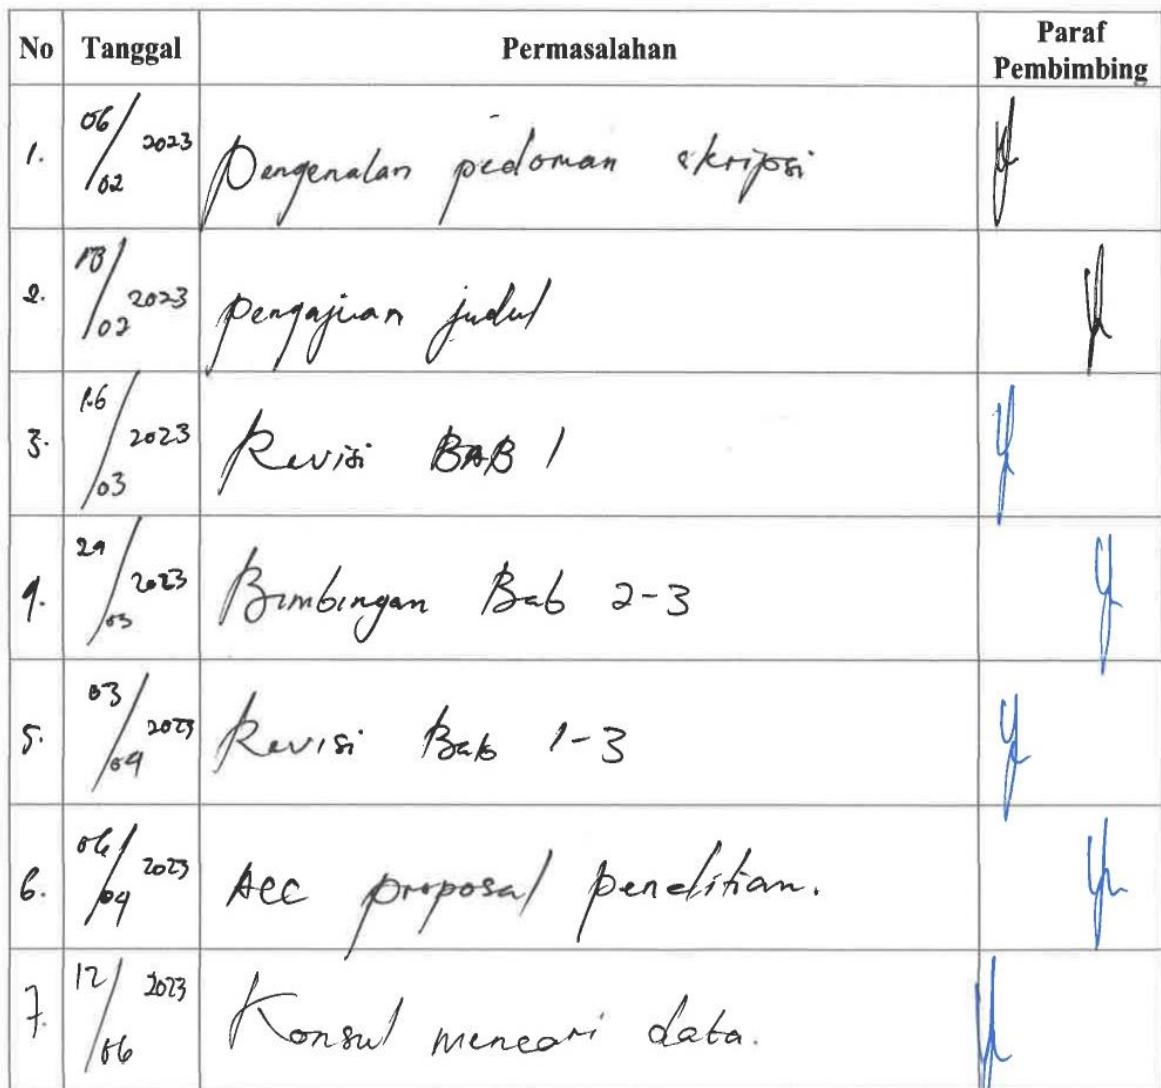 No Tanggal Permasalahan Paraf Pembimbing
1. 06/02 2023 Pengenalan pedoman skripsi
2. 02 2023 pengajuan judul
3. 16/03 2023 Revisi BAB 1
4. 29/03 2023 Bimbingan Bab 2-3
5. 03/04 2023 Revisi Bab 1-3
6. 06/04 2023 Acc proposal penelitian.
7. 12/06 2023 Konsul mencari data.